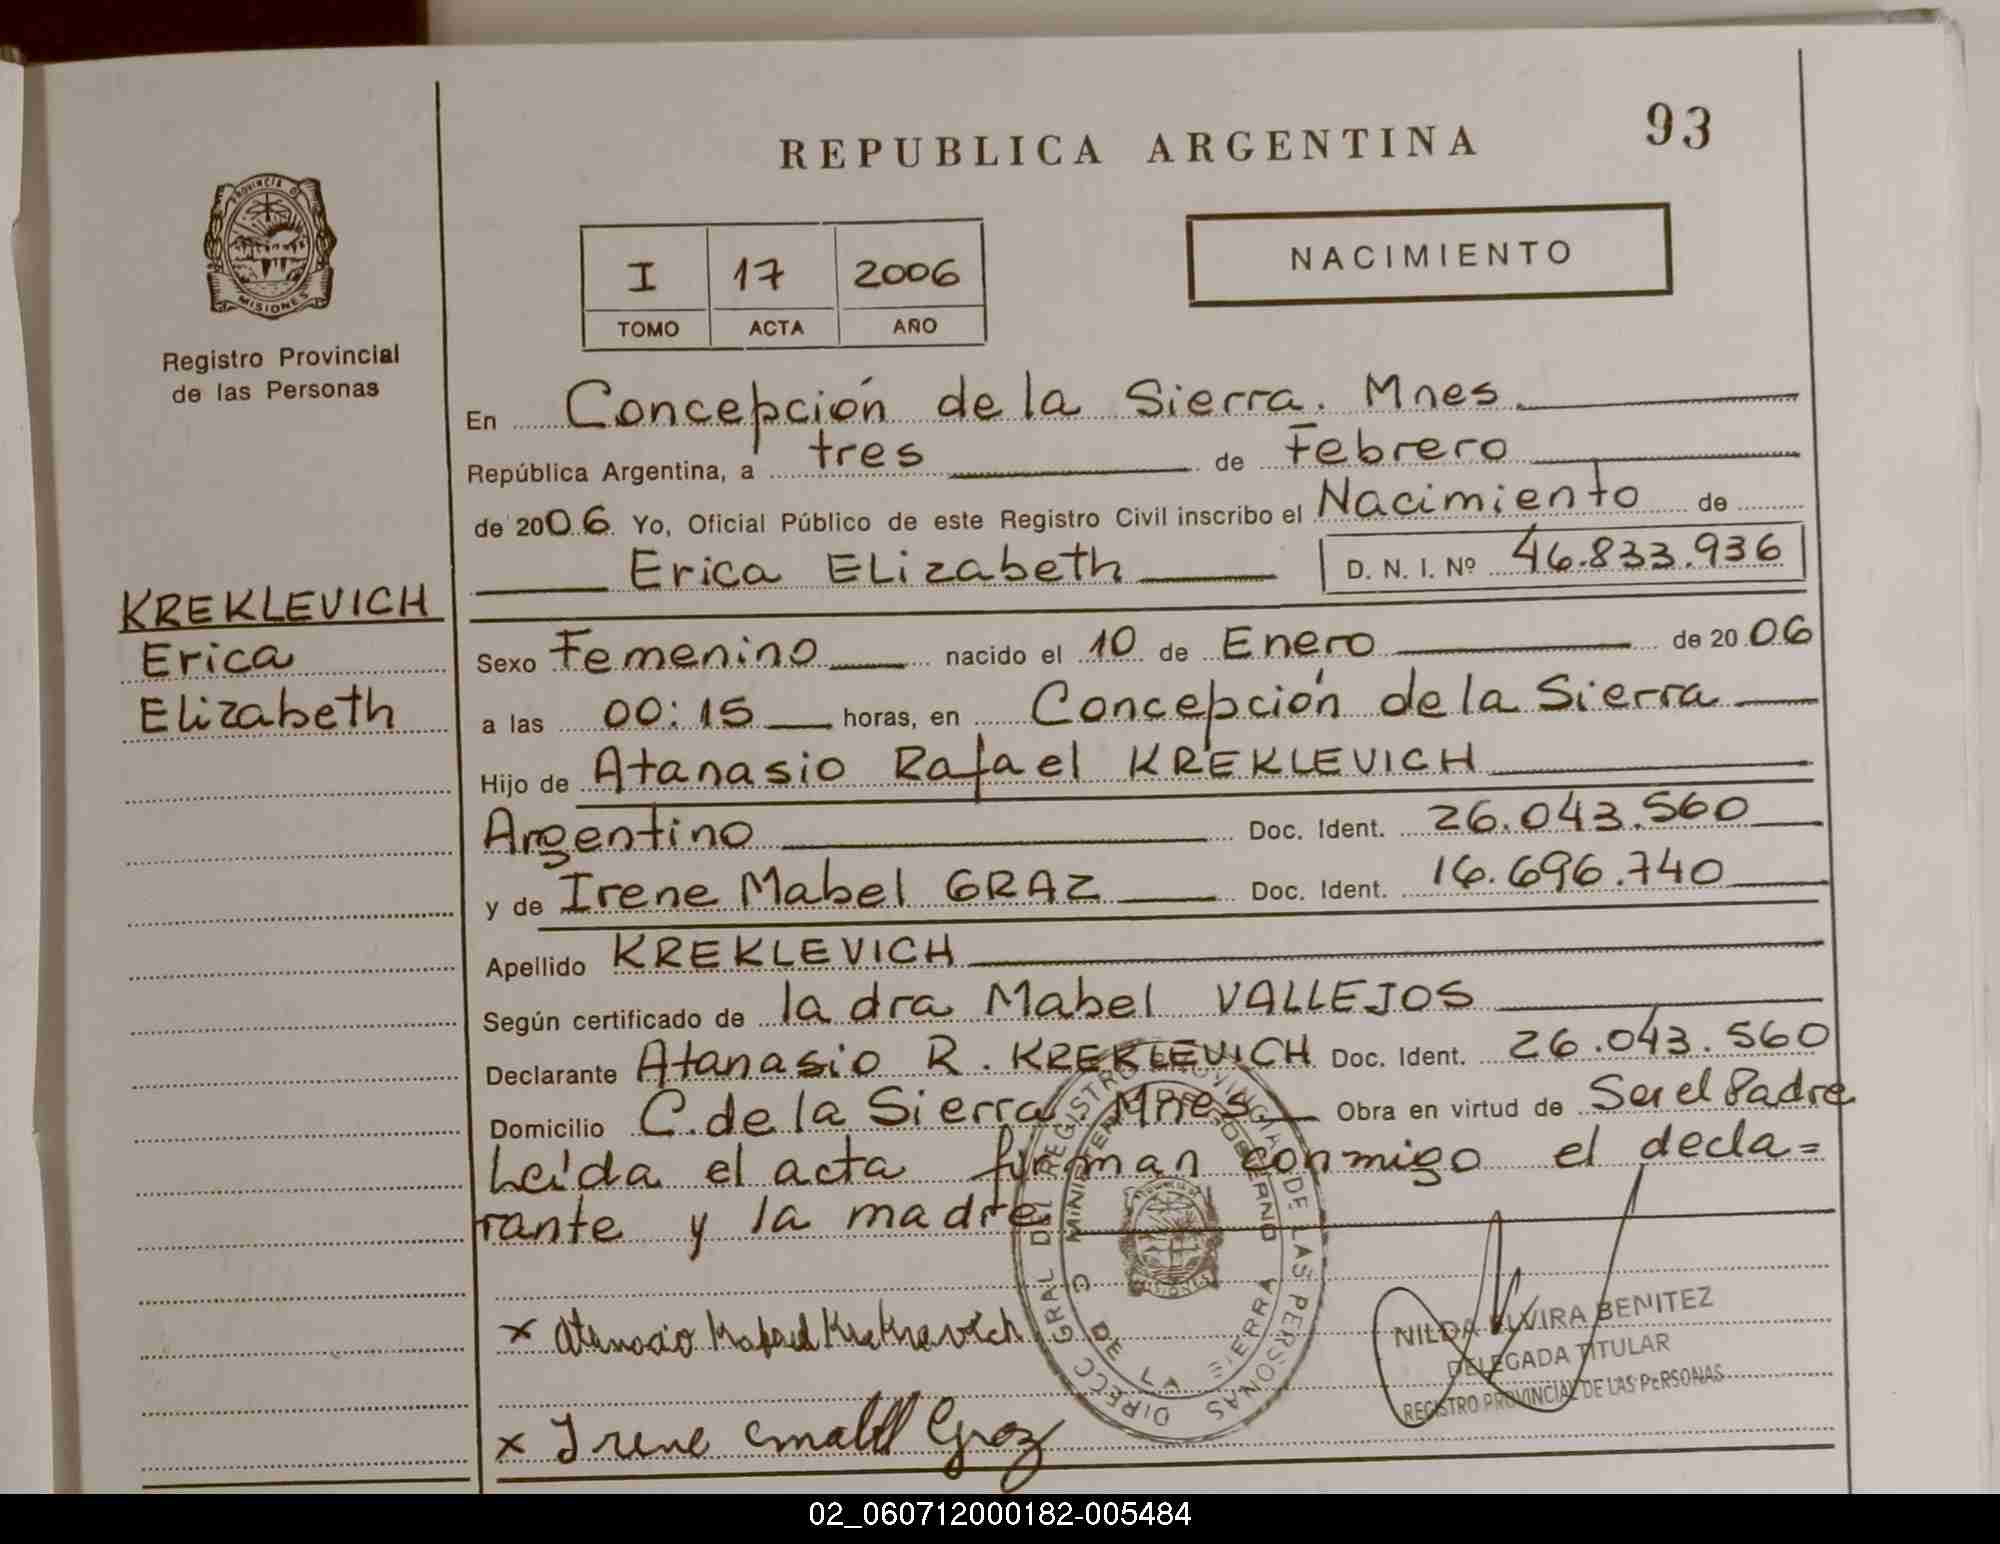 93
REPUBLICA ARGENTINA
PROVINCIA DE
MISIONES
Registro Provincial
de las Personas
I 17 2006
TOMO ACTA AÑO
NACIMIENTO
En Concepción de la Sierra. Mnes.
República Argentina, a tres de Febrero
de 2006 Yo, Oficial Público de este Registro Civil inscribo el Nacimiento de
Erica Elizabeth D. N. I. Nº 46.833.936
KREKLEVICH
Erica
Elizabeth
Sexo Femenino nacido el 10 de Enero de 2006
a las 00:15 horas, en Concepción de la Sierra
Hijo de Atanasio Rafael KREKLEVICH
Argentino Doc. Ident. 26.043.560
y de Irene Mabel GRAZ Doc. Ident. 16.696.740
Apellido KREKLEVICH
Según certificado de la dra Mabel VALLEJOS
Declarante Atanasio R. KREKLEVICH Doc. Ident. 26.043.560
Domicilio C. de la Sierra. Mnes Obra en virtud de Ser el Padre
Leída el acta firman conmigo el decla=
rante y la madre
DIRECC GRAL DEL REGISTRO PROVINCIAL DE LAS PERSONAS
MINISTERIO DE GOBIERNO
C DE LA SIERRA
MISIONES
x Atanacio Rafael Kreklevich
x Irene Mabel Graz
NILDA ELVIRA BENITEZ
DELEGADA TITULAR
REGISTRO PROVINCIAL DE LAS PERSONAS
02_060712000182-005484